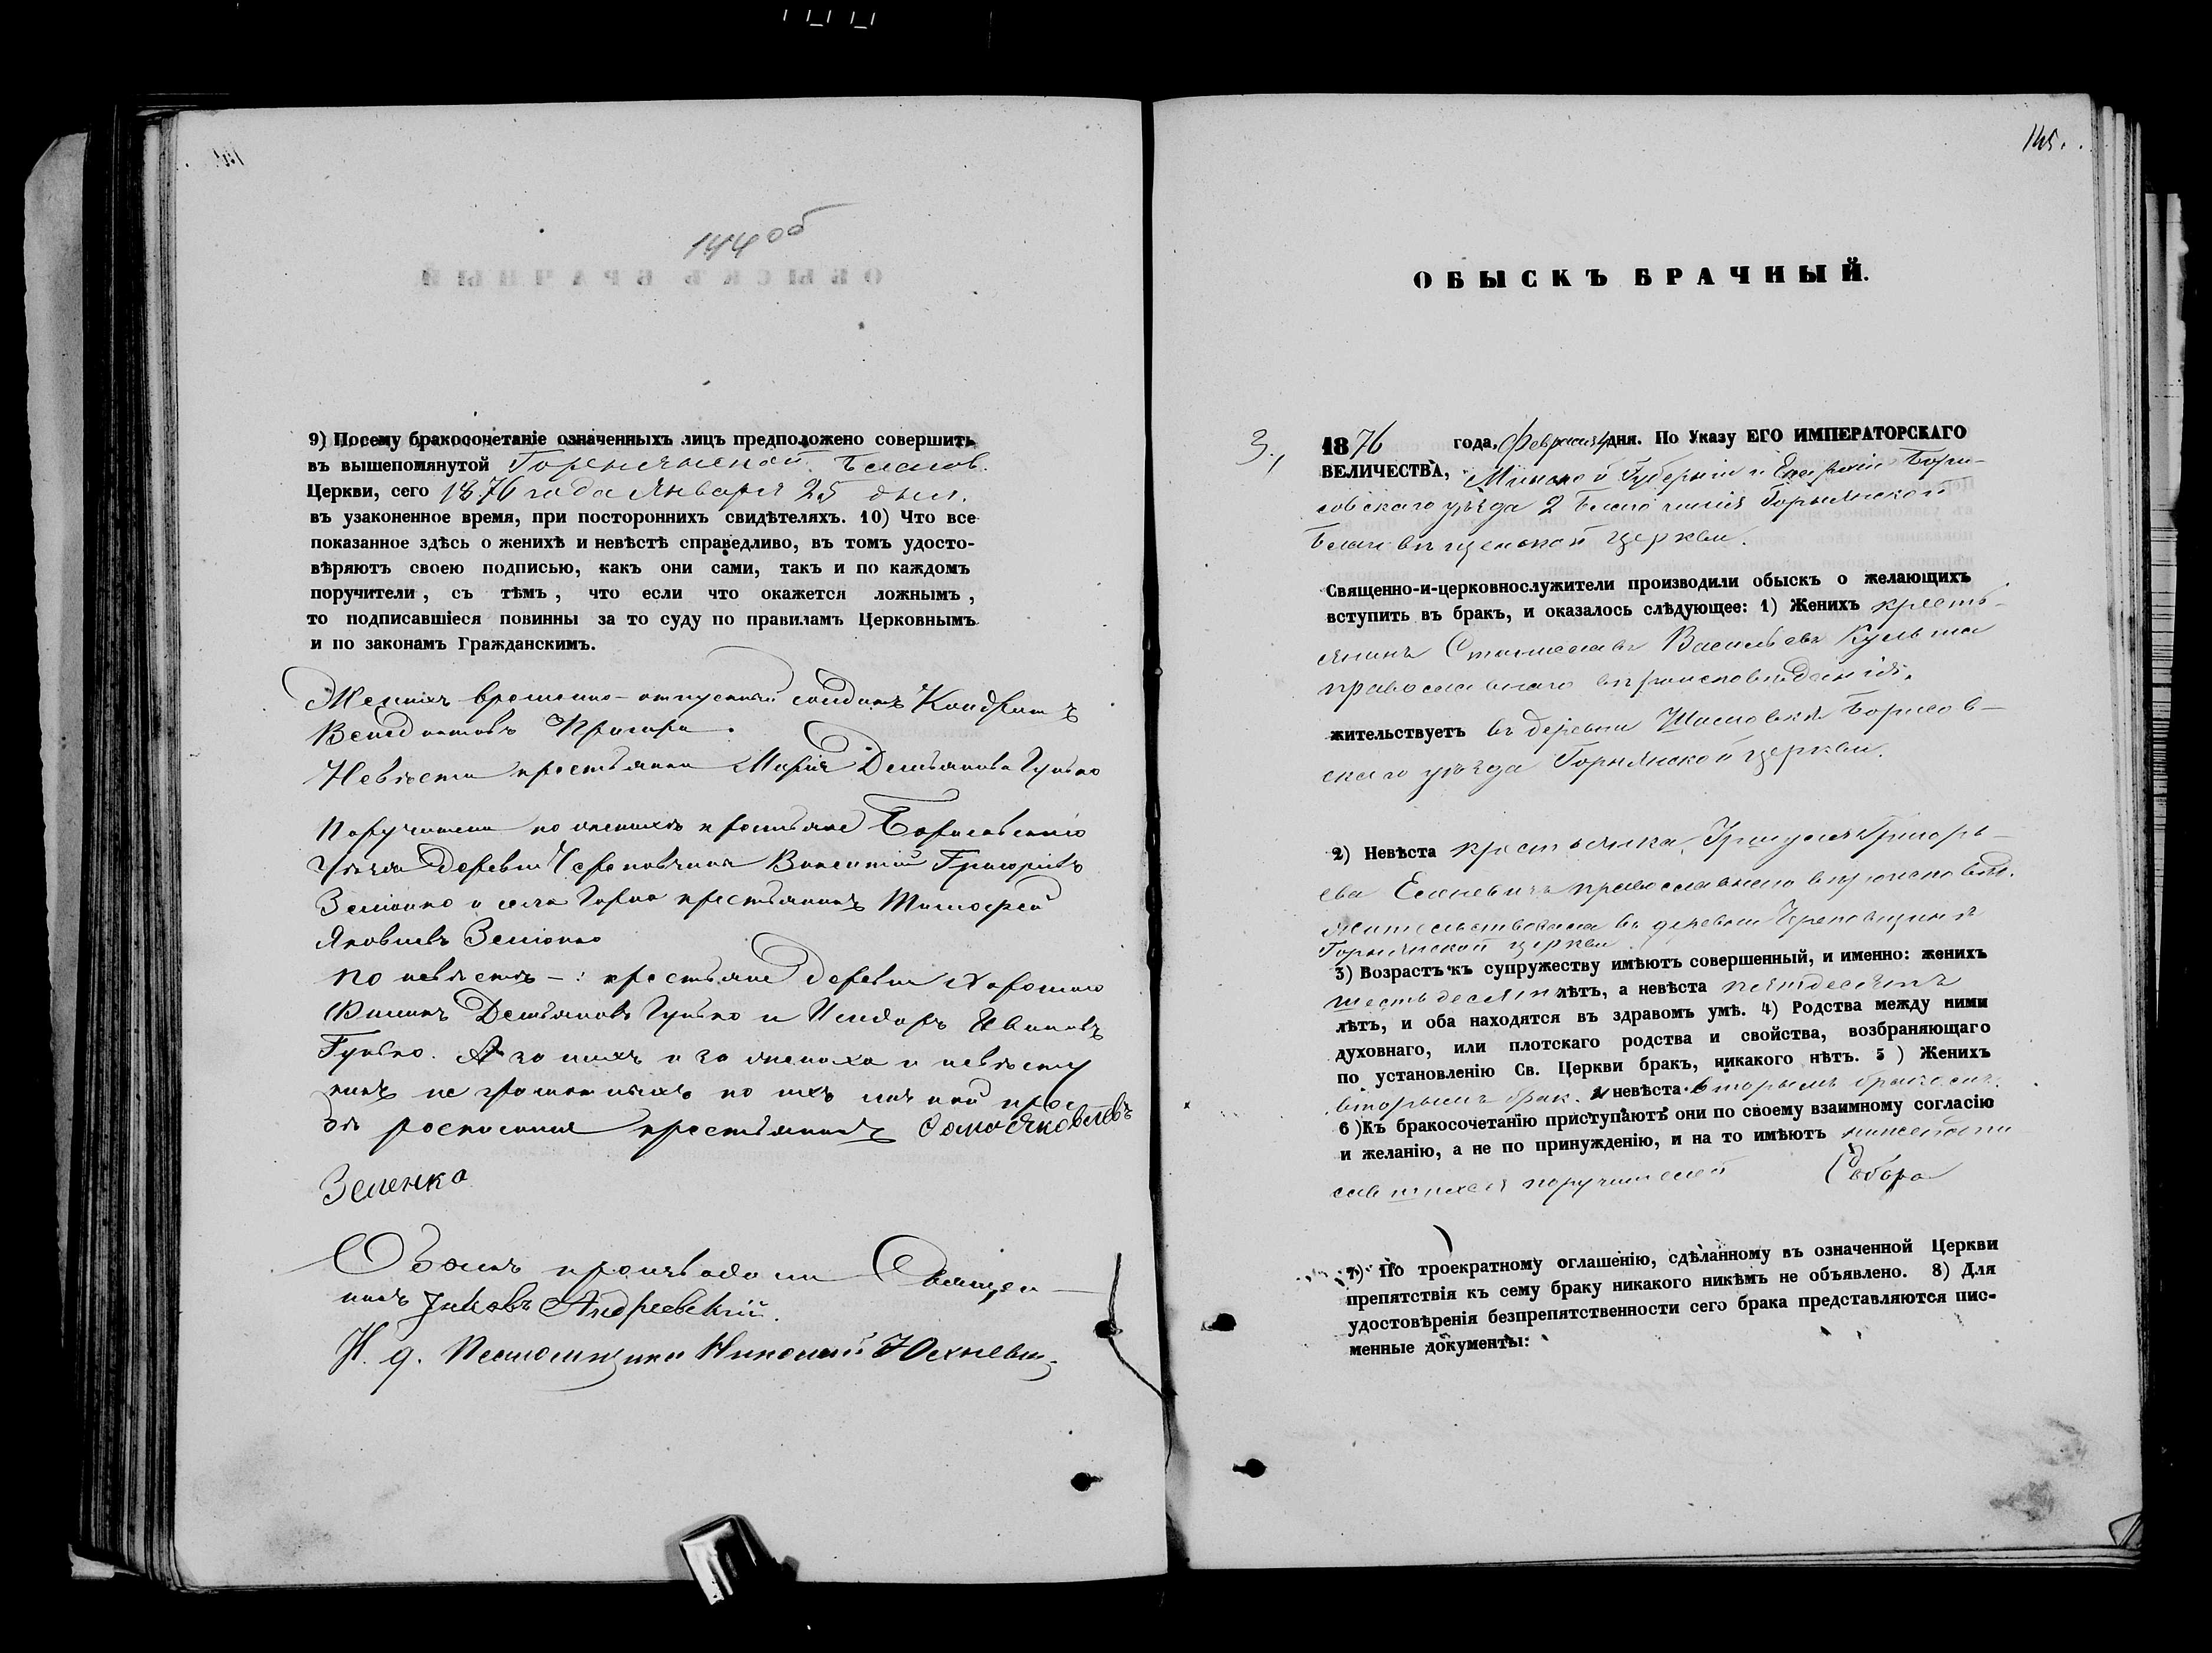 144 об
9) Посему бракосочетаніе означенныхъ лицъ предположено совершить
въ вышепомянутой Горенычской Благов.
Церкви, сего 1876 года Января 25 дня.
въ узаконенное время, при постороннихъ свидѣтеляхъ. 10) Что все
показанное здѣсь о женихѣ и невѣстѣ справедливо, въ томъ удосто-
вѣряютъ своею подписью, какъ они сами, такъ и по каждомъ
поручители, съ тѣмъ, что если что окажется ложнымъ,
то подписавшіеся повинны за то суду по правиламъ Церковнымъ
и по законамъ Гражданскимъ.
Женихъ временно-отпускной солдатъ Кондратъ
Венедиктовъ
Невѣста крестьянка Марія Демьянова Гунько
Поручители по женихѣ крестьяне Борисовскаго
уѣзда деревни Череповщина Викентій Григорьевъ
Зеленко и села Горна крестьянинъ Тимофей
Яковлевъ Зеленко
По невѣстѣ -: крестьяне деревни
Филипъ Демьяновъ Гунько и Исидоръ Ивановъ
Гунько. А за нихъ и за жениха и невѣсту
какъ не грамотныхъ по ихъ личной прось
бѣ росписался крестьянинъ Яковлевъ
Зеленко
Обыскъ производили Священ-
никъ Іаковъ Андреевскій.
И. д. Псаломщика Николай Юхневич
145.
ОБЫСКЪ БРАЧНЫЙ.
3.,
1876 года, Февраля 4 дня. По Указу ЕГО ИМПЕРАТОРСКАГО
ВЕЛИЧЕСТВА, Минской Губерніи и Епархіи Бори-
совскаго уѣзда 2 Благочинія Горнянской
Благовѣщенской церкви.
Священно-и-церковнослужители производили обыскъ о желающихъ
вступить въ бракъ, и оказалось слѣдующее: 1) Женихъ кресть-
янинъ Станиславъ Васильевъ Кульша
православнаго вѣроисповѣданія,
жительствуетъ въ деревни Борисов-
скаго уѣзда Горнянской церкви.
2) Невѣста крестьянка, Григорь-
ева православнаго вѣроисповѣд.
жительствовала въ деревни Череповщинѣ
Горнянской церкви.
3) Возрастъ къ супружеству имѣютъ совершенный, и именно: женихъ
шестьдесятъ лѣтъ, а невѣста пятдесятъ
лѣтъ, и оба находятся въ здравомъ умѣ. 4) Родства между ними
духовнаго, или плотскаго родства и свойства, возбраняющаго
по установленію Св. Церкви бракъ, никакого нѣтъ. 5 ) Женихъ
вторымъ брак. и невѣста вторымъ бракомъ.
6 )Къ бракосочетанію приступаютъ они по своему взаимному согласію
и желанію, а не по принужденію, и на то имѣютъ нижеподпи
савшихся поручителей
7) По троекратному оглашенію, сдѣланному въ означенной Церкви
препятствія къ сему браку никакого никѣмъ не объявлено. 8) Для
удостовѣренія безпрепятственности сего брака представляются пис-
менные документы: